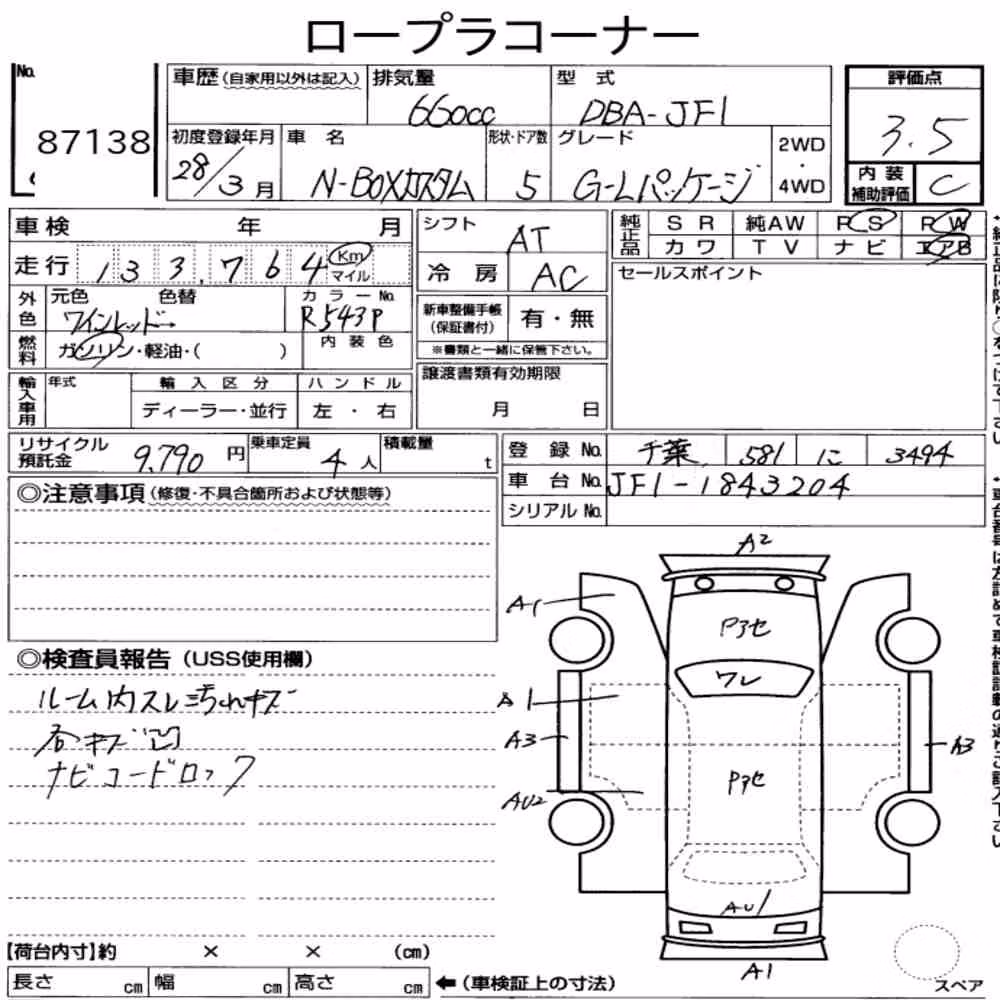 ロープラコーナー
No. 87138
車歴(自家用以外は記入) 排気量 660cc 型式 DBA-JF1
初度登録年月 28/3月 車名 N-BOXカスタム 形状・ドア数 5 グレード G-Lパッケージ 2WD・4WD
評価点 3.5
内装補助評価 C
車検 年 月
走行 133,764 Km マイル
外色 元色 ワインレッド 色替 カラーNo. R543P
燃料 ガソリン・軽油・( ) 内装色
輸入車用 年式 輸入区分 ディーラー・並行 ハンドル 左・右
シフト AT
冷房 AC
新車整備手帳(保証書付) 有・無
※書類と一緒に保管下さい。
譲渡書類有効期限 月 日
純正品 SR 純AW PS PW
カワ TV ナビ エアB
セールスポイント
リサイクル預託金 9,790円 乗車定員 4人 積載量 t
登録No. 千葉 581 に 3494
車台No. JF1-1843204
シリアルNo.
◎注意事項(修復・不具合箇所および状態等)
◎検査員報告(USS使用欄)
ルーム内スレ汚れキズ
各キズ凹
ナビコードロック
A2
A1
Pアセ
ワレ
A1
A3
A3
Pアセ
AU2
AU1
A1
スペア
【荷台内寸】約 × × (cm)
長さ cm 幅 cm 高さ cm ←(車検証上の寸法)